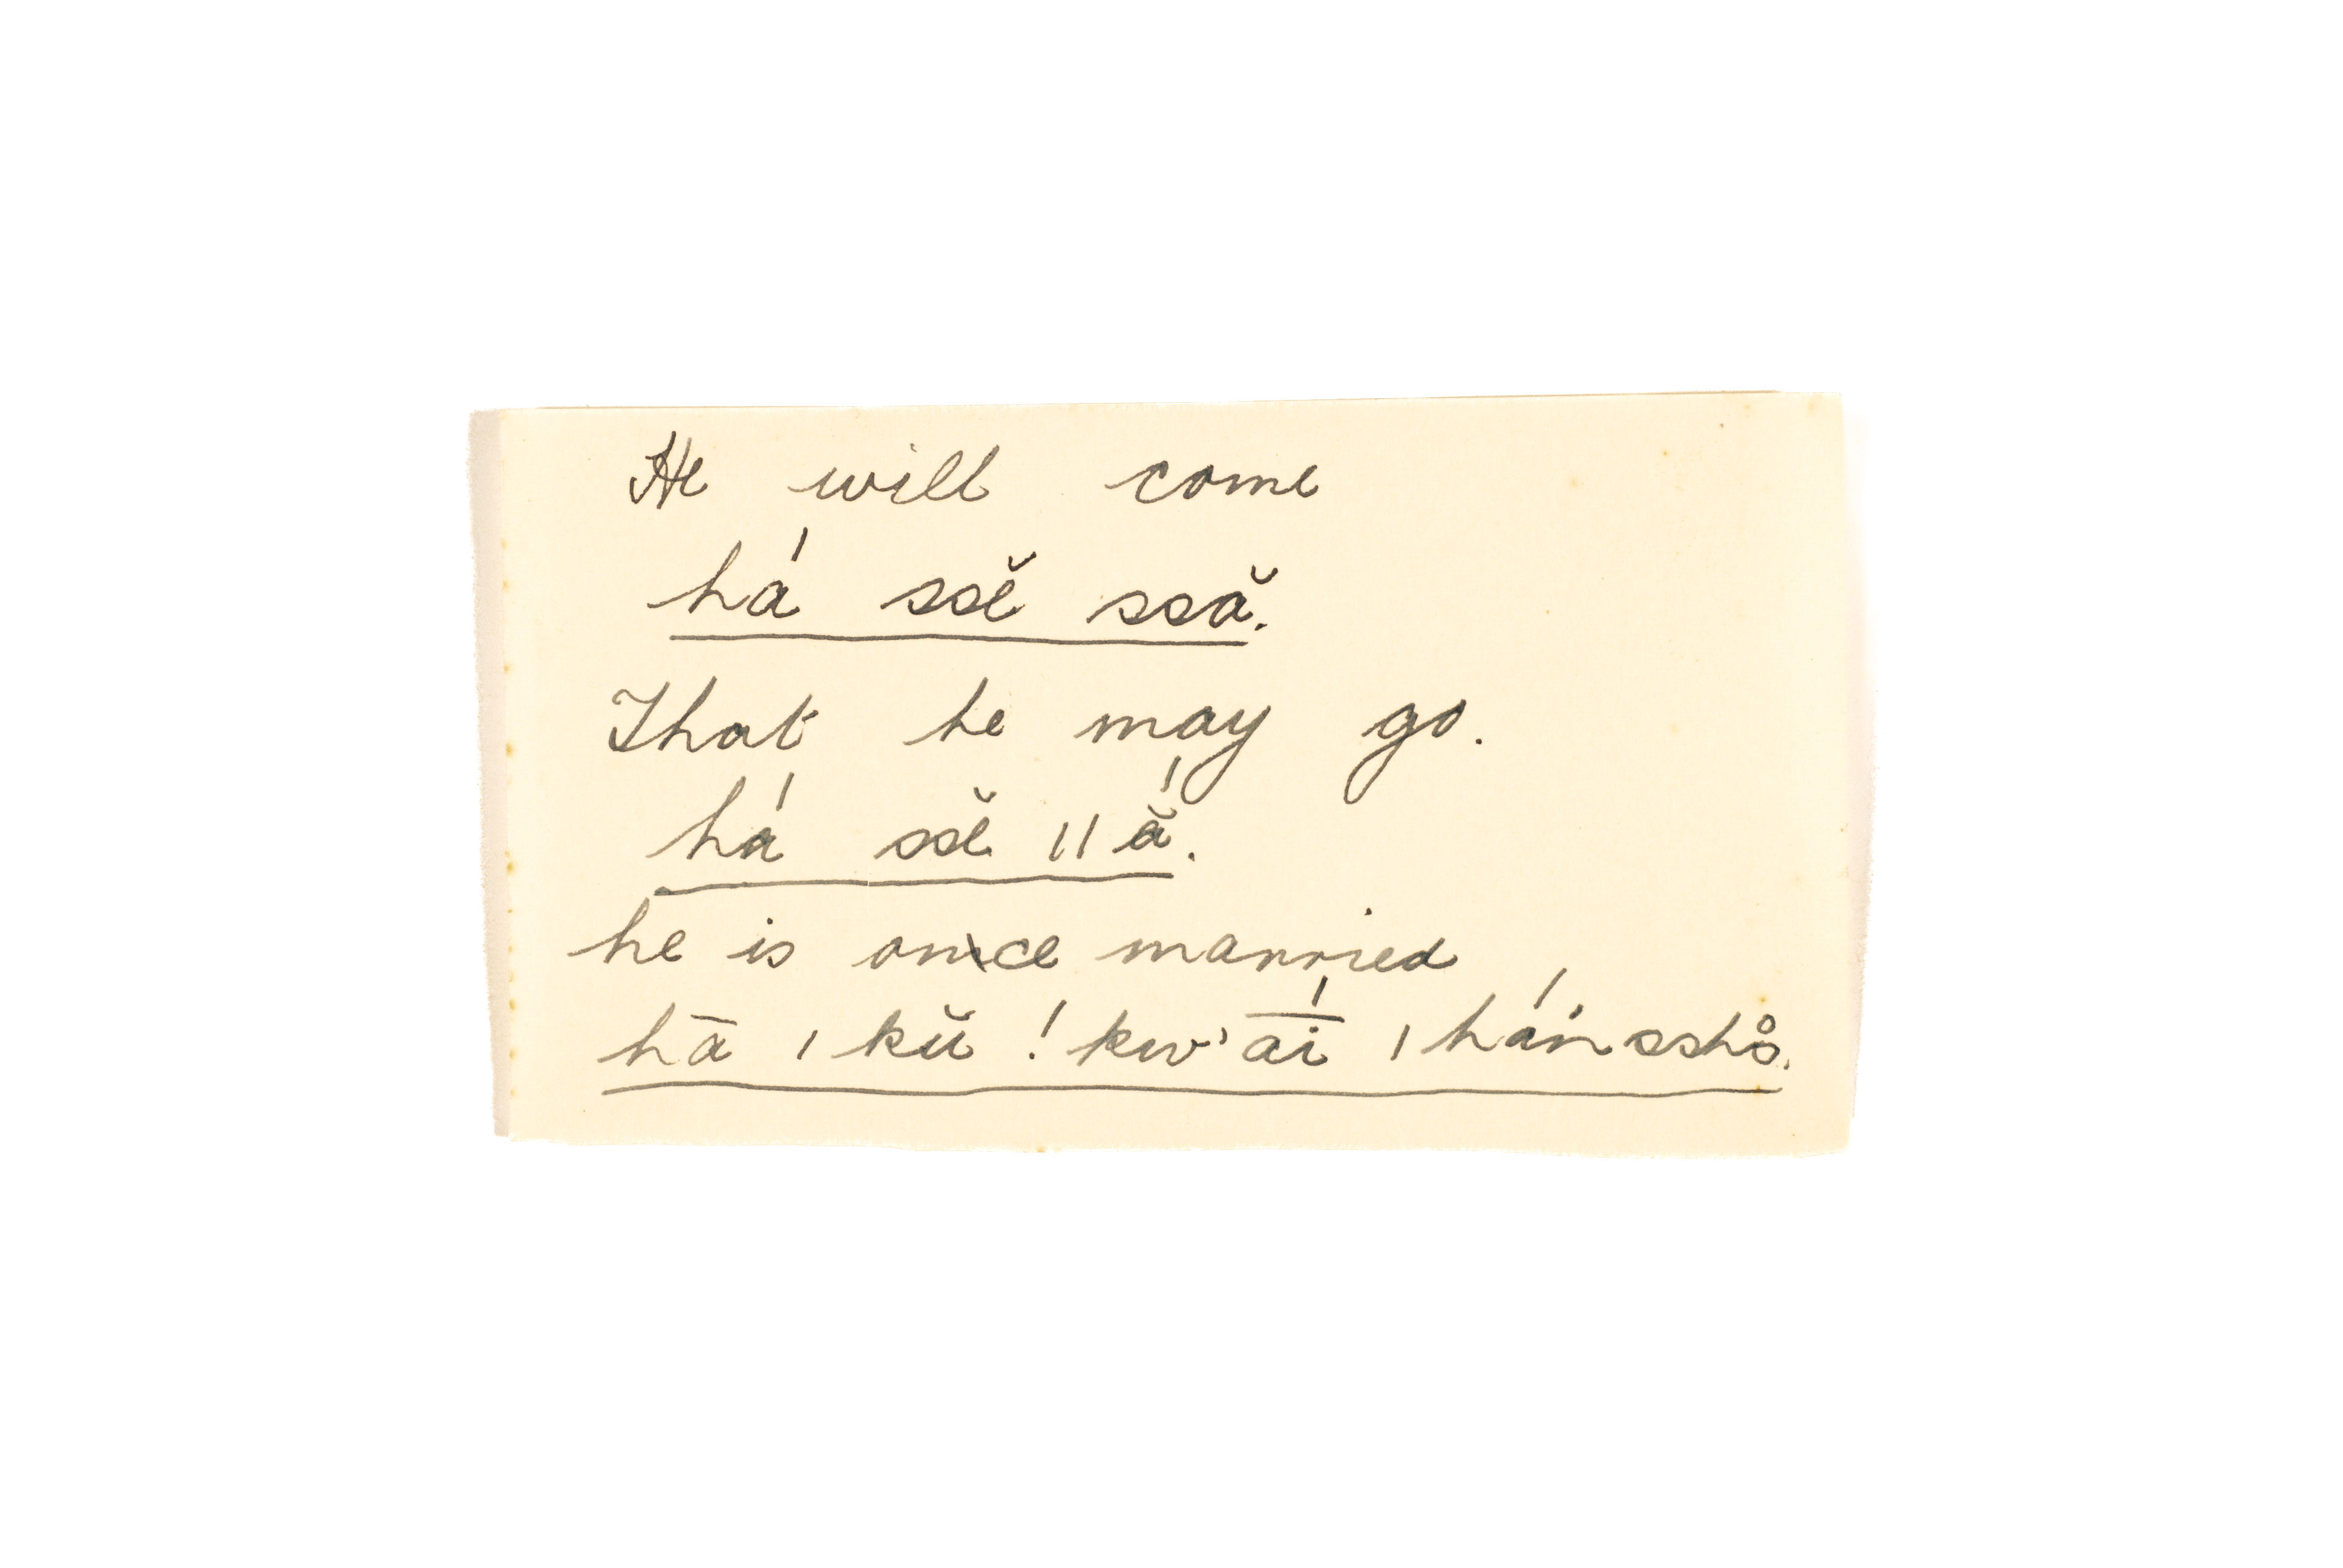 He will come
há ssĕ ssă.
That he may go.
há ssĕ ǁ ắ.
he is once married
hā ǀ kŭ ! kw' ā́i ǀ hán ssho̊.